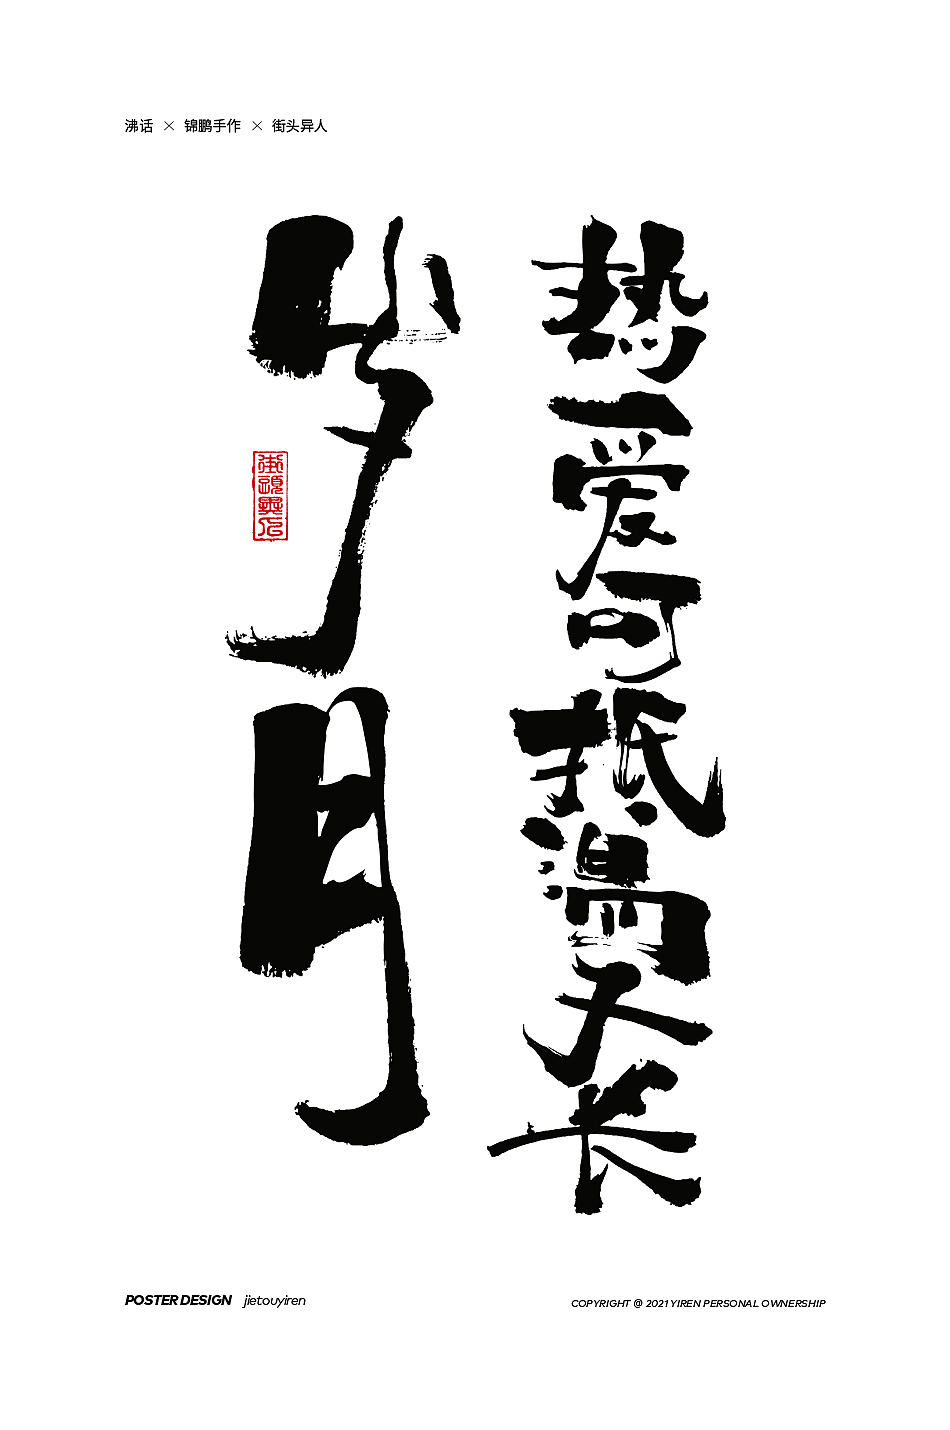 沸话 × 锦鹏手作 × 街头异人
热爱可抵漫长
岁月
街頭異人
POSTER DESIGN jietouyiren
COPYRIGHT @ 2021 YIREN PERSONAL OWNERSHIP